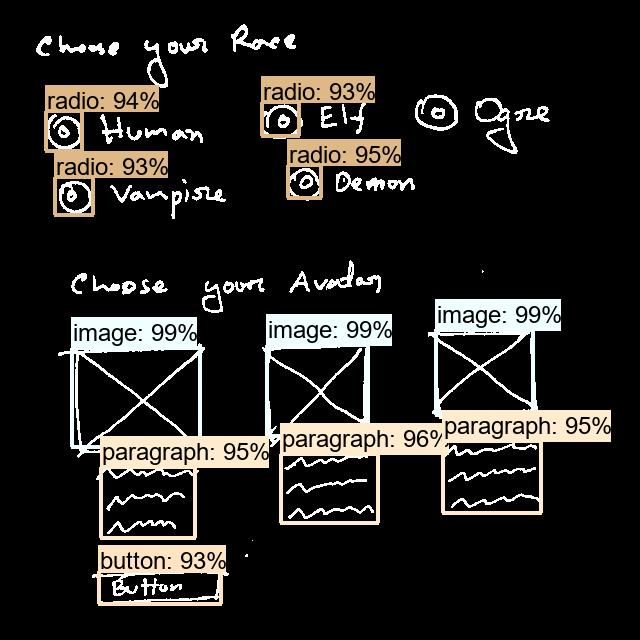 Choose your Race
radio: 94% radio: 93%
Human Elf Ogre
radio: 93% radio: 95%
Vampire Demon
Choose your Avatar
image: 99% image: 99% image: 99%
paragraph: 95% paragraph: 96% paragraph: 95%
button: 93%
Button